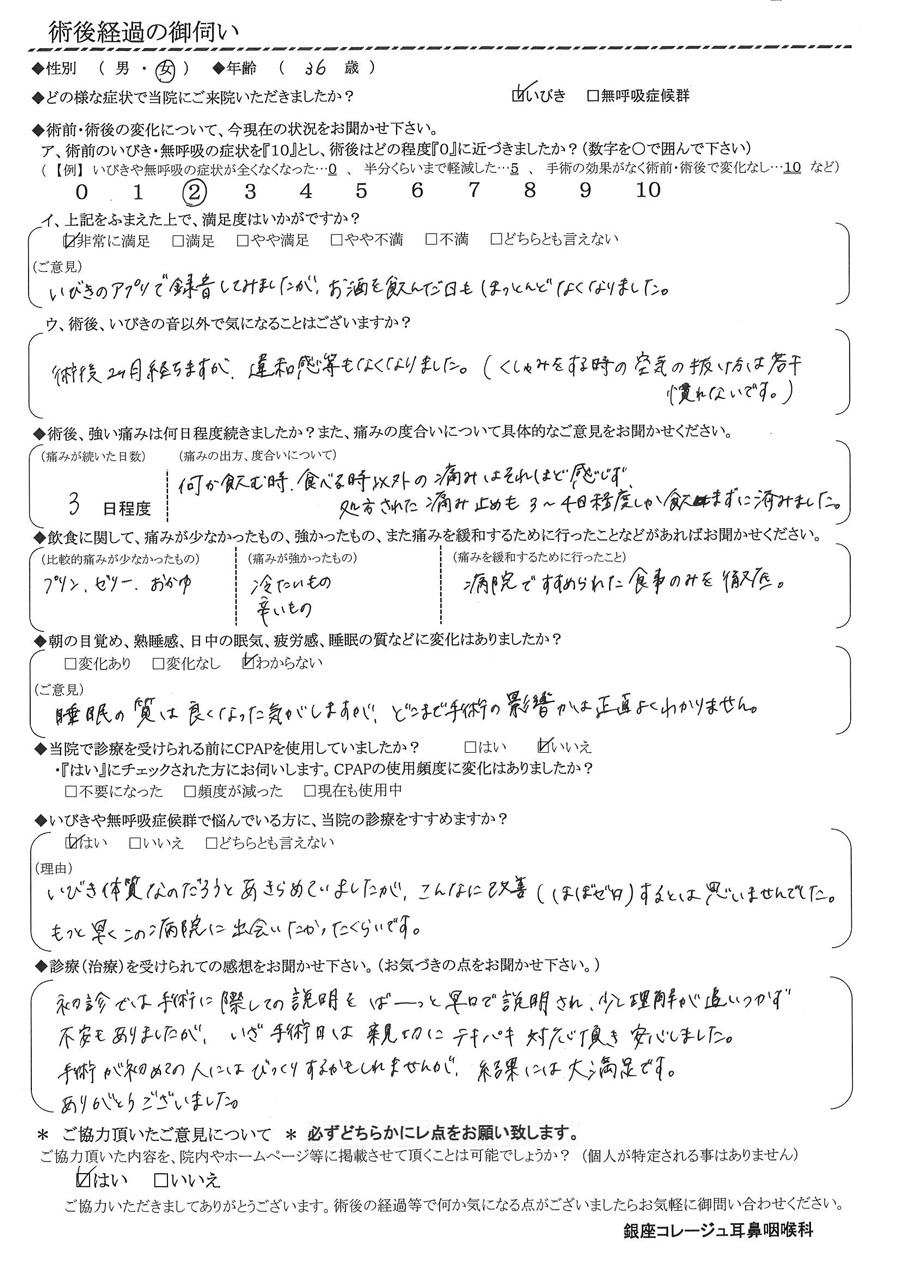 術後経過の御伺い
◆性別 ( 男 ・ 女 ) ◆年齢 ( 36 歳 )
◆どの様な症状で当院にご来院いただきましたか? ☑いびき □無呼吸症候群
◆術前・術後の変化について、今現在の状況をお聞かせ下さい。
ア、術前のいびき・無呼吸の症状を『10』とし、術後はどの程度『0』に近づきましたか?(数字を〇で囲んで下さい)
(【例】 いびきや無呼吸の症状が全くなくなった…0 、 半分くらいまで軽減した…5 、 手術の効果がなく術前・術後で変化なし…10 など)
0 1 2 3 4 5 6 7 8 9 10
イ、上記をふまえた上で、満足度はいかがですか?
☑非常に満足 □満足 □やや満足 □やや不満 □不満 □どちらとも言えない
(ご意見)
いびきのアプリで録音してみましたが、お酒を飲んだ日もほっとんどなくなりました。
ウ、術後、いびきの音以外で気になることはございますか?
術後2ヶ月経ちますが、違和感等もなくなりました。(くしゃみをする時の空気の抜け方は若干
慣れないです。)
◆術後、強い痛みは何日程度続きましたか?また、痛みの度合いについて具体的なご意見をお聞かせください。
(痛みが続いた日数) (痛みの出方、度合いについて)
何か飲む時、食べる時以外の痛みはそれほど感じず、
3 日程度 処方された痛み止めも3〜4日程度しか飲まずに済みました。
◆飲食に関して、痛みが少なかったもの、強かったもの、また痛みを緩和するために行ったことなどがあればお聞かせください。
(比較的痛みが少なかったもの) (痛みが強かったもの) (痛みを緩和するために行ったこと)
プリン、ゼリー、おかゆ 冷たいもの 病院ですすめられた食事のみを徹底。
辛いもの
◆朝の目覚め、熟睡感、日中の眠気、疲労感、睡眠の質などに変化はありましたか?
□変化あり □変化なし ☑わからない
(ご意見)
睡眠の質は良くなった気がしますが、どこまで手術の影響かは正直よくわかりません。
◆当院で診療を受けられる前にCPAPを使用していましたか? □はい ☑いいえ
・『はい』にチェックされた方にお伺いします。CPAPの使用頻度に変化はありましたか?
□不要になった □頻度が減った □現在も使用中
◆いびきや無呼吸症候群で悩んでいる方に、当院の診療をすすめますか?
☑はい □いいえ □どちらとも言えない
(理由)
いびき体質なのだろうとあきらめていましたが、こんなに改善(ほぼゼロ)するとは思いませんでした。
もっと早くこの病院に出会いたかったくらいです。
◆診療(治療)を受けられての感想をお聞かせ下さい。(お気づきの点をお聞かせ下さい。)
初診では手術に際しての説明をばーっと早口で説明され、少し理解が追いつかず
不安もありましたが、いざ手術日は親切にテキパキ対応頂き安心しました。
手術が初めての人にはびっくりするかもしれませんが、結果には大満足です。
ありがとうございました。
＊ ご協力頂いたご意見について ＊ 必ずどちらかにレ点をお願い致します。
ご協力頂いた内容を、院内やホームページ等に掲載させて頂くことは可能でしょうか? (個人が特定される事はありません)
☑はい □いいえ
ご協力いただきましてありがとうございます。術後の経過等で何か気になる点がございましたらお気軽に御問い合わせください。
銀座コレージュ耳鼻咽喉科